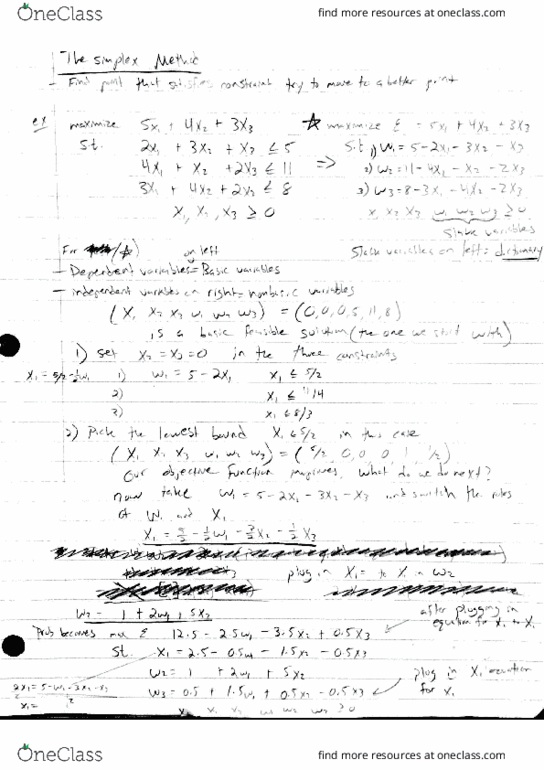 OneClass
find more resources at oneclass.com
The simplex Method
- Find point that satisfies constraint try to move to a better point
ex maximize 5x₁ + 4x₂ + 3x₃
☆ maximize ξ = 5x₁ + 4x₂ + 3x₃
St. 2x₁ + 3x₂ + x₃ ≤ 5
S.t 1) w₁ = 5 - 2x₁ - 3x₂ - x₃
4x₁ + x₂ + 2x₃ ≤ 11
=> 2) w₂ = 11 - 4x₁ - x₂ - 2x₃
3x₁ + 4x₂ + 2x₃ ≤ 8
3) w₃ = 8 - 3x₁ - 4x₂ - 2x₃
x₁, x₂, x₃ ≥ 0
x₁ x₂ x₃ w₁ w₂ w₃ ≥ 0
Slack variables
For (☆) on left
Slack variables on left = dictionary
- Dependent variables = Basic variables
- independent variables on right = nonbasic variables
(x₁ x₂ x₃ w₁ w₂ w₃) = (0,0,0,5,11,8)
is a basic feasible solution (the one we start with)
1) set x₂ = x₃ = 0 in the three constraints
x₁ = 5/2 - ½w₁
1) w₁ = 5 - 2x₁ x₁ ≤ 5/2
2) x₁ ≤ 11/4
3) x₁ ≤ 8/3
2) Pick the lowest bound x₁ ≤ 5/2 in this case
(x₁ x₂ x₃ w₁ w₂ w₃) = (5/2, 0, 0, 0, 1, 1/2)
Our objective function improves. What do we do next?
now take w₁ = 5 - 2x₁ - 3x₂ - x₃ and switch the roles
of w₁ and x₁
x₁ = 5/2 - ½w₁ - 3/2x₂ - ½x₃
plug in x₁ = to x₁ in w₂
w₂ = 1 + 2w₁ + 5x₂
after plugging in equation for x₁ to x₁
Prob becomes max ξ 12.5 - 2.5w₁ - 3.5x₂ + 0.5x₃
St. x₁ = 2.5 - 0.5w₁ - 1.5x₂ - 0.5x₃
w₂ = 1 + 2w₁ + 5x₂
plug in x₁ equation for x₁
2x₁ = 5 - w₁ - 3x₂ - x₃
w₃ = 0.5 + 1.5w₁ + 0.5x₂ - 0.5x₃
x₁ =
x₁ x₂ x₃ w₁ w₂ w₃ ≥ 0
OneClass
find more resources at oneclass.com